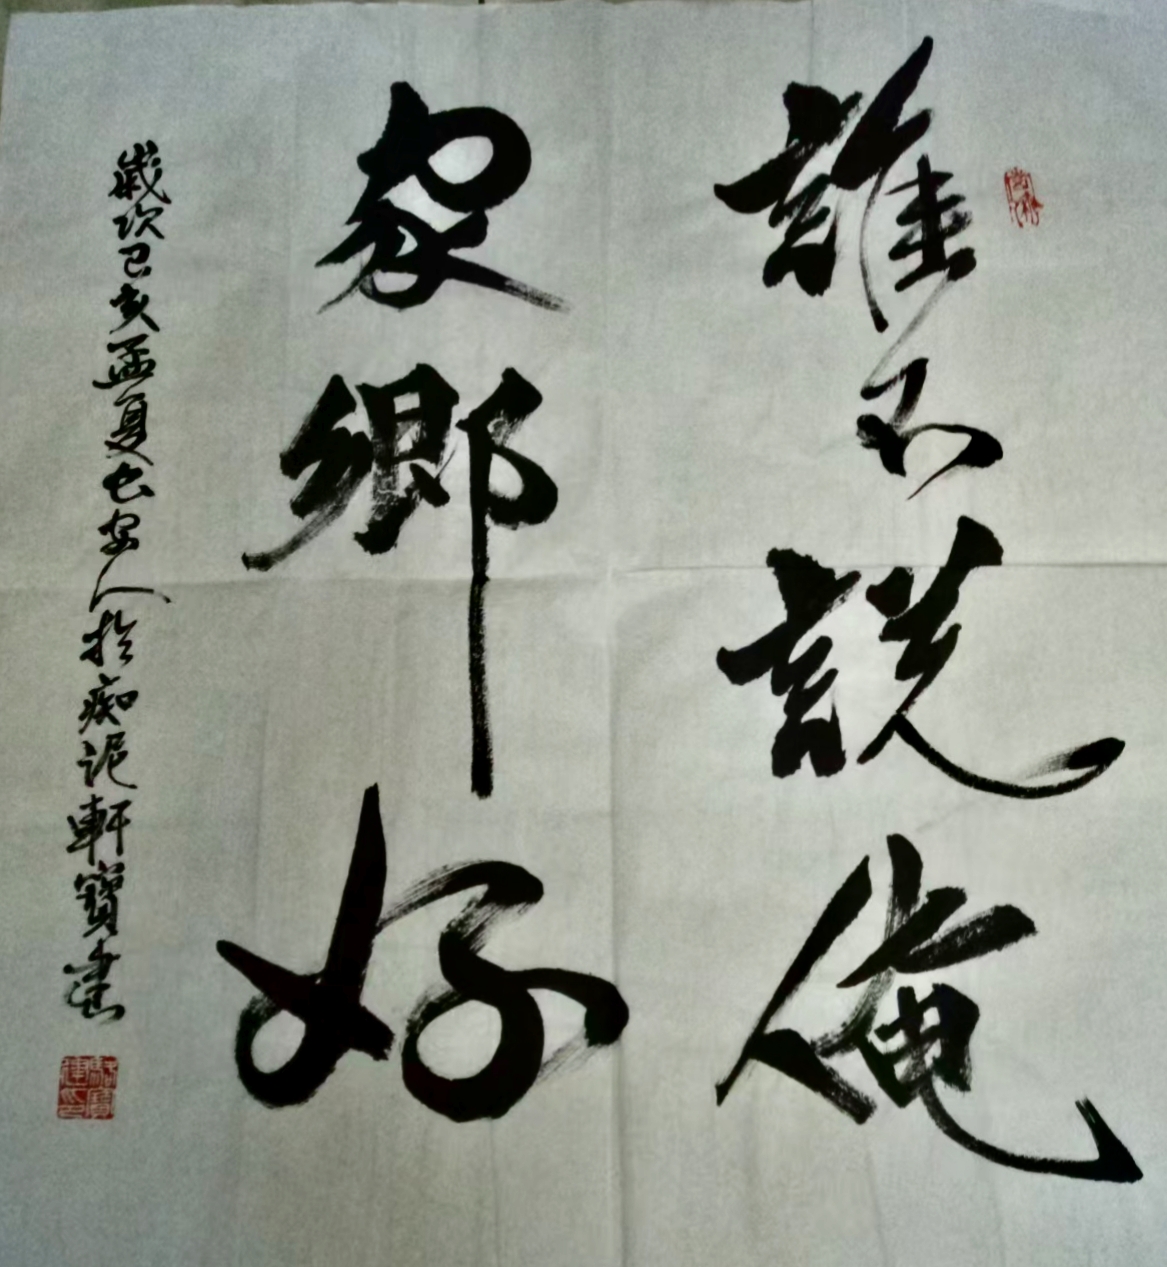 誰不説俺
家鄉好
歲次己亥孟夏长安人於痴泥軒寶建書